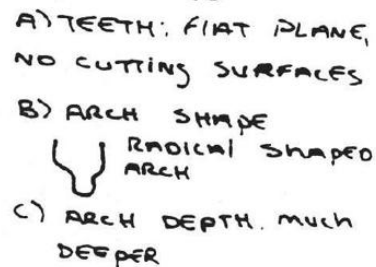 A) TEETH: FLAT PLANE,
NO CUTTING SURFACES
B) ARCH SHAPE
RADICAL SHAPED
ARCH
C) ARCH DEPTH. MUCH
DEEPER